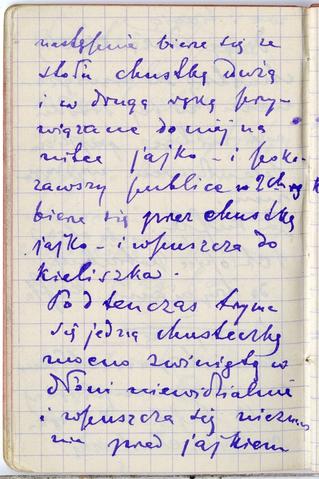 następnie bierze się ze
stołu chustkę dużą
i w drugą rękę przy-
wiązane do niej na
nitce jajko - i poka-
zawszy publice w 2ch ręk
bierze się przez chustkę
jajko - i wpuszcza do
kieliszka.
Podtenczas trzyma
się jedną chusteczkę
mocno zwiniętą w
dłoni niewidzialnie
i wpuszcza się niezna
nie przed jajkiem